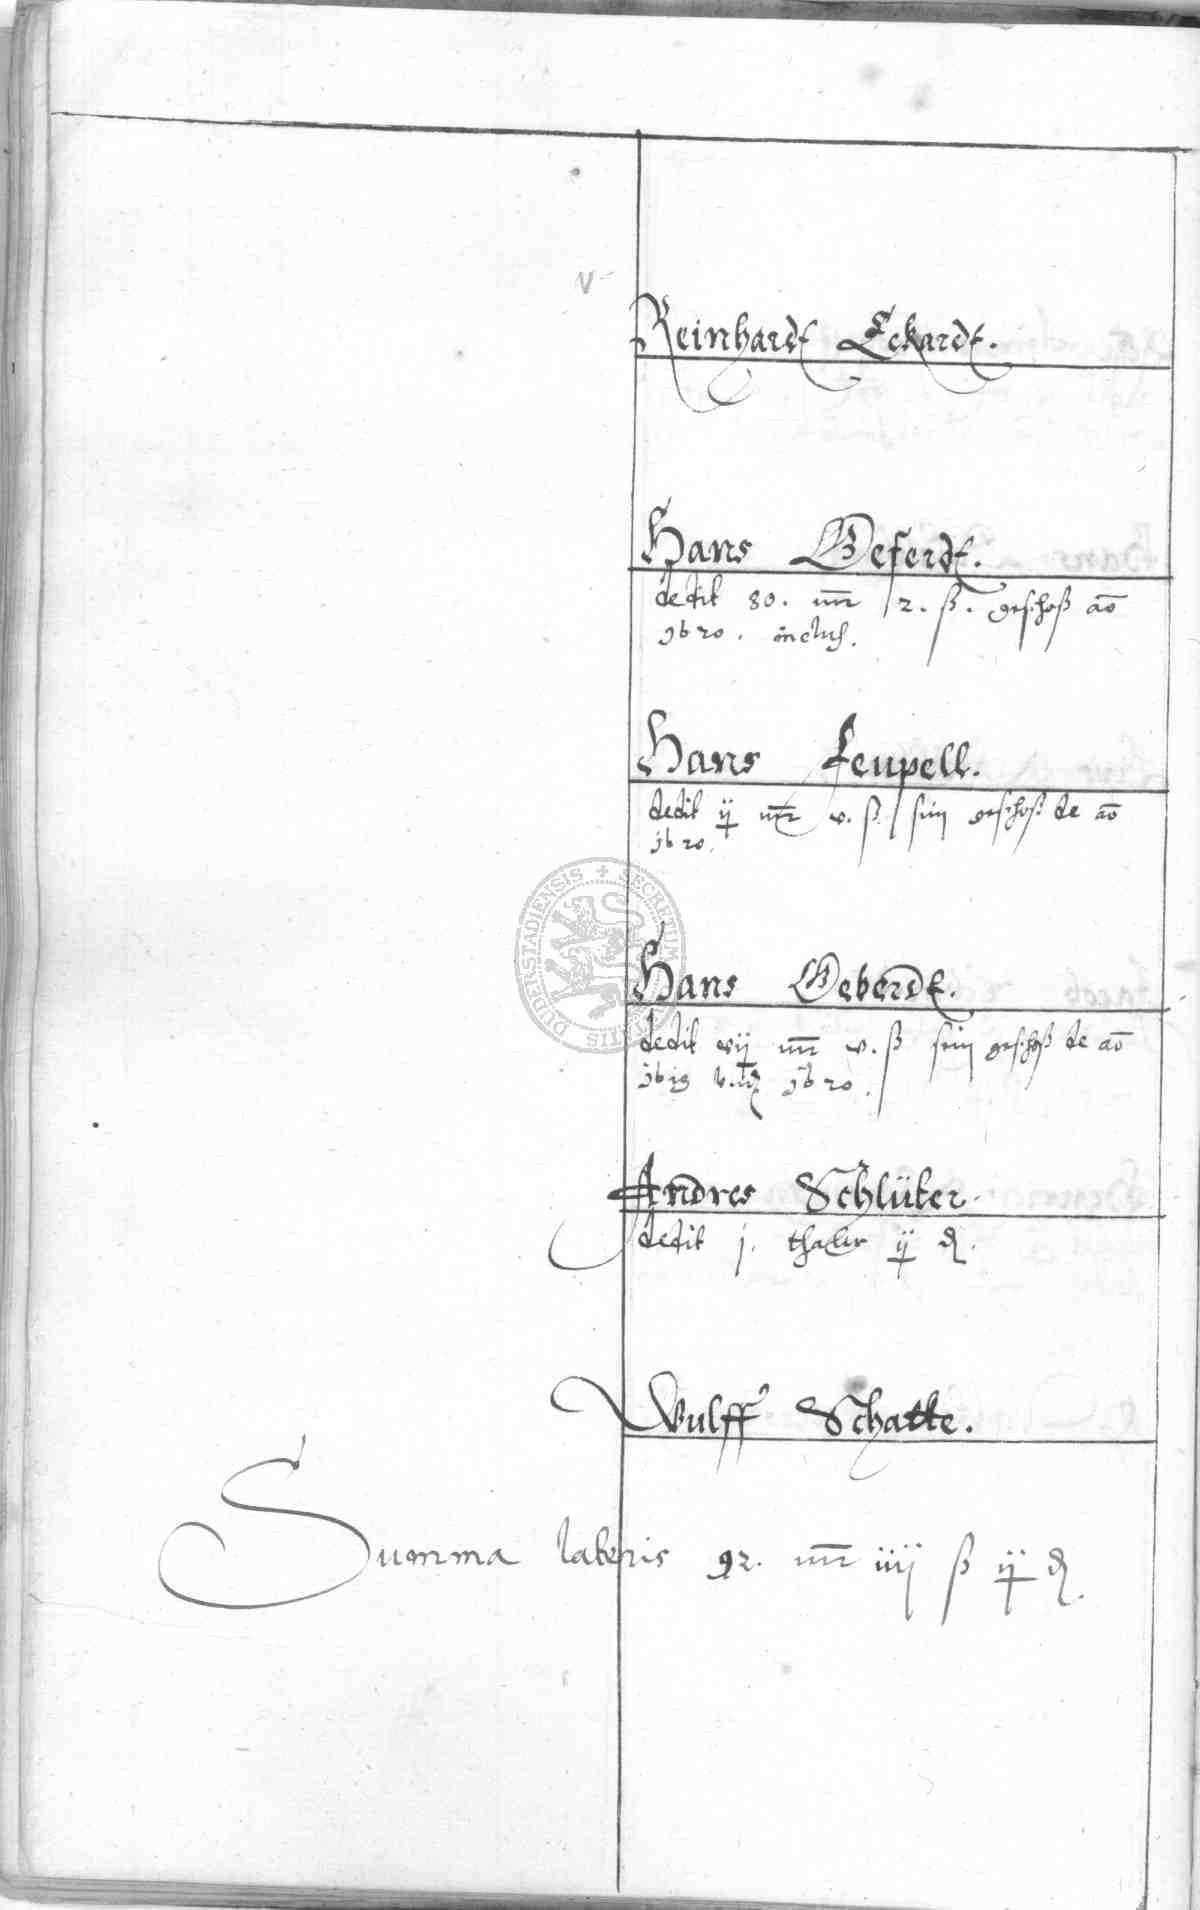 Reinhardt Eckardt.
Hans Geferdt.
dedit 80. mr 2. ß. geschoß ao
1620. inclus.
Hans Leupell.
dedit ij mr v. ß sein geschoß de ao
1620.
Hans Geberdt.
dedit vij mr v. ß sein geschoß de ao
1619 1620.
Andres Schlüter.
dedit j. thaler ij ₰.
Wulff Schatte.
Summa lateris 92. mr iiij ß ij ₰.
DUDERSTADIENSIS + SECRETUM CIVITATIS